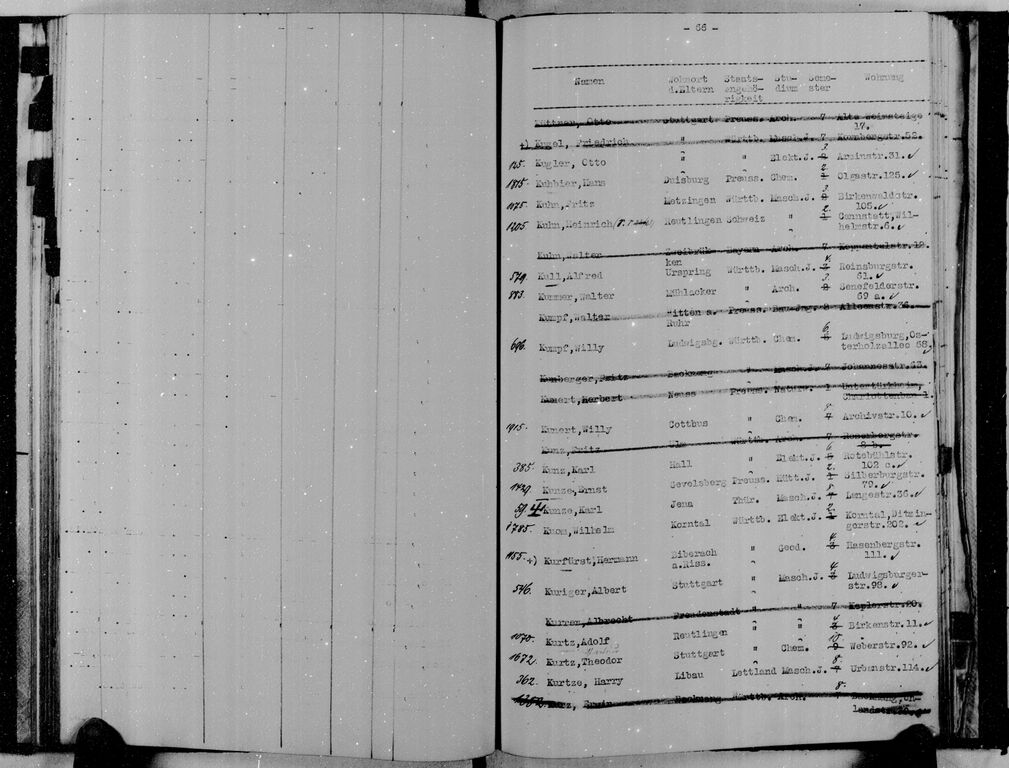 - 66 -
Namen Wohnort Staats- Stu- Seme- Wohnung
d.Eltern angehö- dium ster
rigkeit
Otto Stuttgart Preuss. Arch. 7 Alte Weinsteige
17.
+) Kugel, Friedrich " Württb. Masch.J. 7 Kornbergstr.52.
3.
Kugler, Otto " " Elekt.J. Arminstr.31. ✓
2.
1815. Kuhbier,Hans Duisburg Preuss. Chem. 1 Olgastr.125. ✓
3.
1175. Kuhn,Fritz Metzingen Württb. Masch.J. Birkenwaldstr.
2. 105. ✓
1205 Kuhn,Heinrich Reutlingen Schweiz " 1 Cannstatt,Wil-
" helmstr.6. ✓
Kuhn,Walter Zweibrük- Bayern Arch. 7 Keppentalstr.12.
ken 4.
579. Kull,Alfred Urspring Württb. Masch.J. 3 Reinsburgstr.
3. 51. ✓
893. Kummer,Walter Mühlacker " Arch. Senefelderstr.
59 a. ✓
Kumpf,Walter Witten a. Preuss. Bau-Ing. 8 Alleenstr.36.
Ruhr
6
696. Kumpf,Willy Ludwigsbg. Württb. Chem. Ludwigsburg,Os-
terholzallee 58. ✓
Kunberger,Fritz Backnang " Masch.J. 7 Johannesstr.53.
Kunert,Herbert Neuss Preuss. Naturw. 1 Untertürkheim,
8. Charlottenstr. 1.
1915. Kunert,Willy Cottbus " Chem. 7 Archivstr.10. ✓
Kunz,Fritz Ulm Württb. Arch. 7 Rosenbergstr.
6 2 b.
385. Kunz,Karl Hall " Elekt.J. 5 Rotebühlstr.
2. 102 c. ✓
1429. Kunze,Ernst Gevelsberg Preuss. Hütt.J. 1 Silberburgstr.
8. 79. ✓
594 Kunze,Karl Jena Thür. Masch.J. 7 Langestr.36. ✓
2.
1785. Kuom,Wilhelm Korntal Württb. Elekt.J. 1 Korntal,Ditzin-
gerstr.202. ✓
4
1155. +) Kurfürst,Hermann Biberach " Geod. 3 Hasenbergstr.
a.Riss. 111. ✓
4.
546. Kuriger,Albert Stuttgart " Masch.J. 3 Ludwigsburger-
str.98. ✓
Kurrer,Albrecht Freudenstadt " " 7 Keplerstr.20.
1070. Kurtz,Adolf Reutlingen " " 3 Birkenstr.11. ✓
10.
1672. Kurtz,Theodor Stuttgart " Chem. 9 Weberstr.92. ✓
8.
362. Kurtze, Harry Libau Lettland Masch.J. 7 Urbanstr.114. ✓
8.
Kurz, Erwin Backnang Württb. Arch. 7 Backnang,Uh-
landstr.